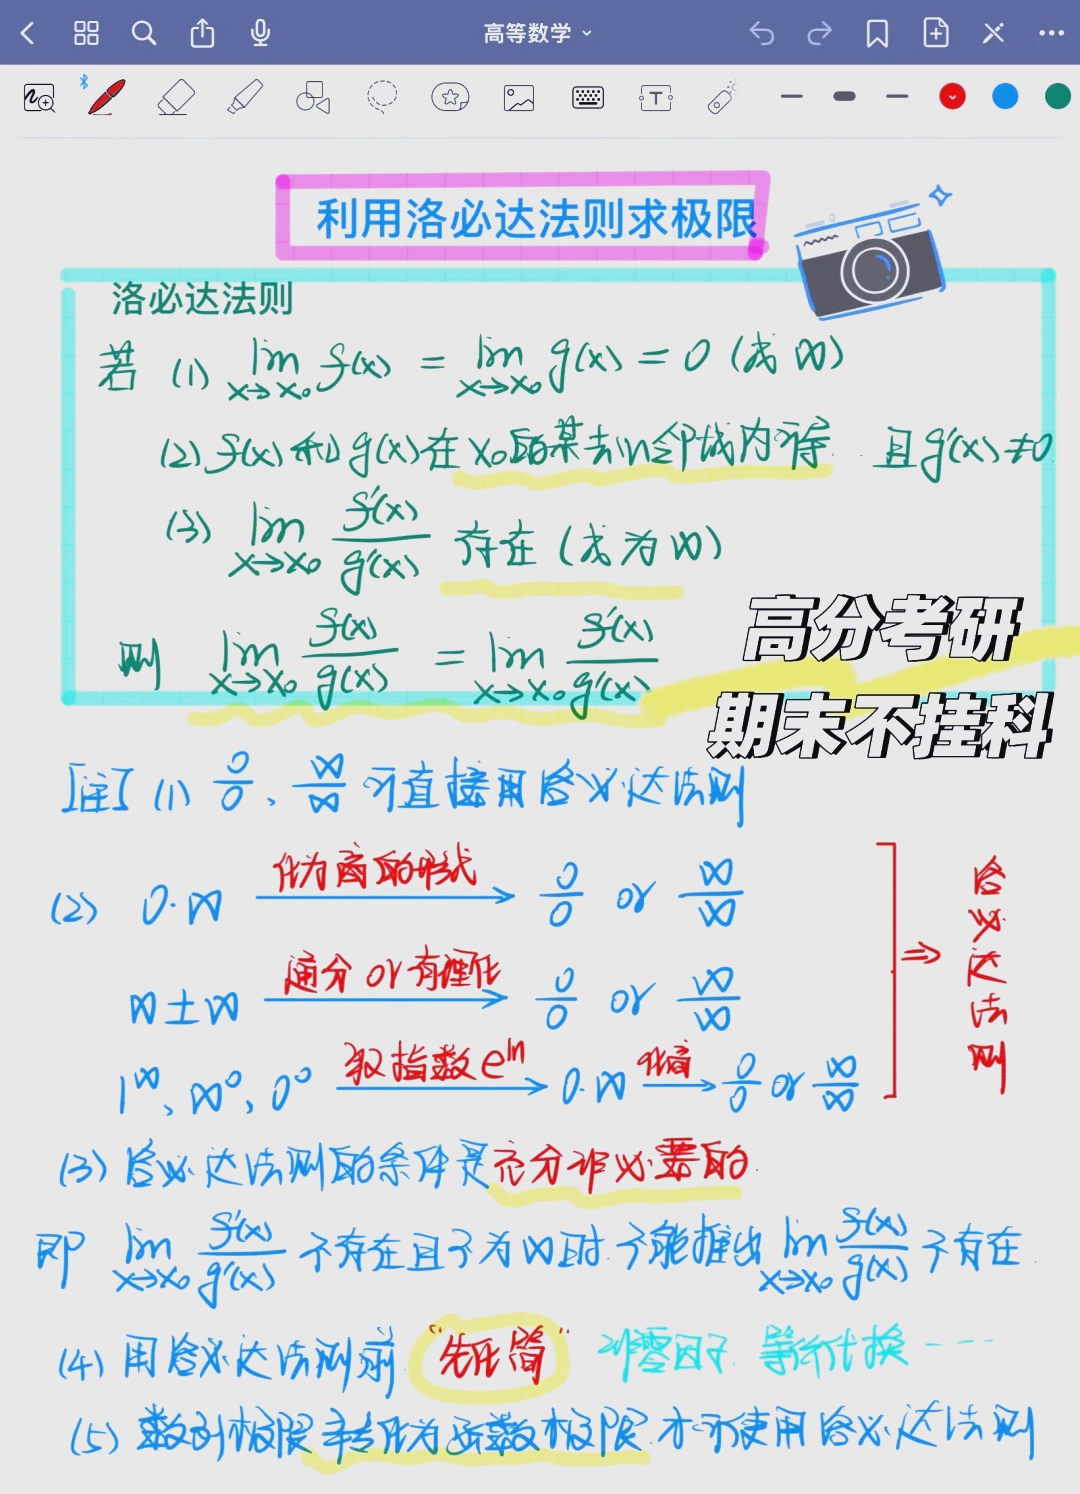 高等数学
利用洛必达法则求极限
洛必达法则
若 (1) lim x→x₀ f(x) = lim x→x₀ g(x) = 0 (或 ∞)
(2) f(x) 和 g(x) 在 x₀ 的某去心邻域内可导 且 g'(x) ≠ 0
(3) lim x→x₀ f'(x)/g'(x) 存在 (或为 ∞)
则 lim x→x₀ f(x)/g(x) = lim x→x₀ f'(x)/g'(x)
高分考研
期末不挂科
[注] (1) 0/0、∞/∞ 可直接用洛必达法则
(2) 0·∞ 化为商的形式 0/0 or ∞/∞
∞±∞ 通分 or 有理化 0/0 or ∞/∞
1^∞、∞⁰、0⁰ 取指数 e^ln 0·∞ 化商 0/0 or ∞/∞
⇒ 洛必达法则
(3) 洛必达法则的条件是充分非必要的
即 lim x→x₀ f'(x)/g'(x) 不存在且不为∞时 不能推出 lim x→x₀ f(x)/g(x) 不存在
(4) 用洛必达法则前 “先化简” 非零因子 等价代换 ----
(5) 数列极限 转化为函数极限 才可使用洛必达法则